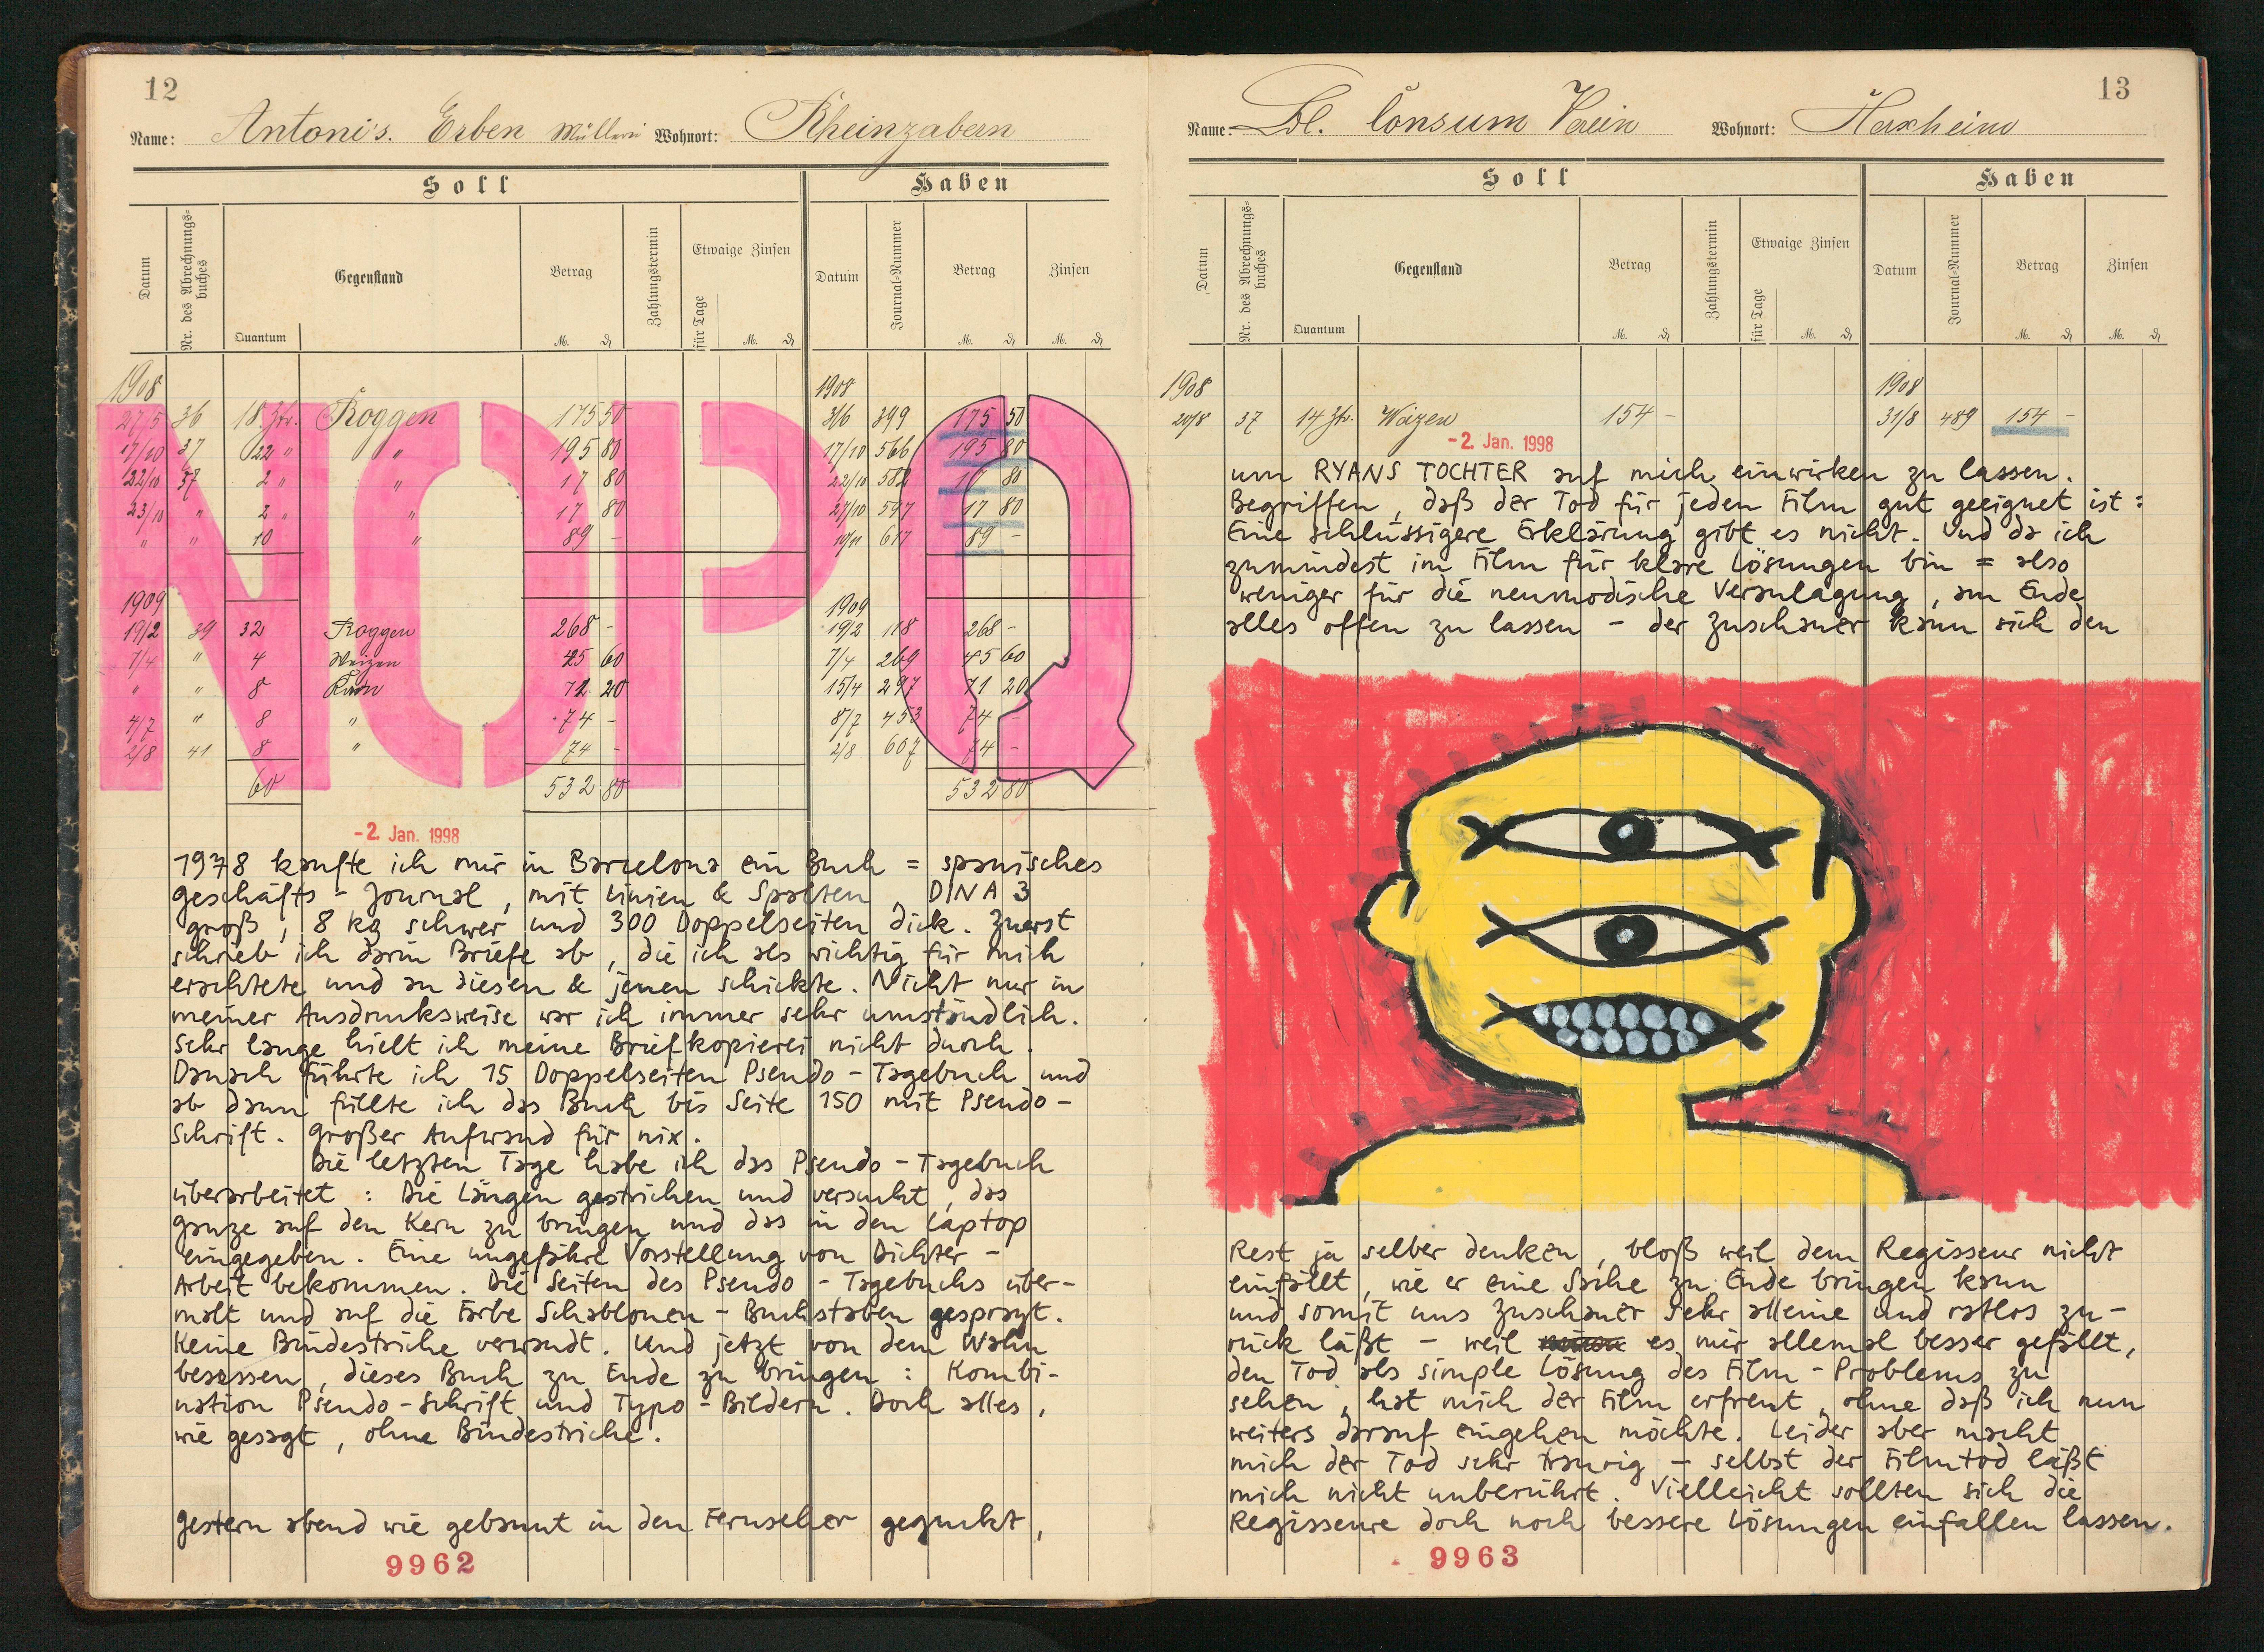 12
Name: Antoni's. Erben Müllerei Wohnort: Rheinzabern
Soll Haben
Datum
Nr. des Abrechnungs-
buches
Quantum
Gegenstand
Betrag
M. ₰
Zahlungstermin
Etwaige Zinsen
für Tage
M. ₰
Datum
Journal-Nummer
Betrag
M. ₰
Zinsen
M. ₰
NOPQ
1908 1908
27/5 36 18 Ztr. Roggen 175 50 3/6 399 175 50
17/10 37 22 " " 195 80 17/10 566 195 80
22/10 37 2 " " 17 80 22/10 582 17 80
23/10 " 2 " " 17 80 27/10 597 17 80
" " 10 " 89 - 10/11 617 89 -
1909 1909
19/2 39 32 Roggen 268 - 19/2 118 268 -
7/4 " 4 Weizen 45 60 7/4 269 45 60
" " 8 Korn 71 20 15/4 297 71 20
4/7 " 8 " 74 - 8/7 453 74 -
2/8 41 8 " 74 - 2/8 607 74 -
60 532 80 532 80
-2. Jan. 1998
1978 kaufte ich mir in Barcelona ein Buch = spanisches
Geschäfts - Journal , mit Linien & Spalten , DIN A 3
groß , 8 kg schwer und 300 Doppelseiten dick . Zuerst
schrieb ich darin Briefe ab , die ich als wichtig für mich
erachtete und an diesen & jenen schickte . Nicht nur in
meiner Ausdrucksweise war ich immer sehr umständlich .
Sehr lange hielt ich meine Briefkopiererei nicht durch .
Danach führte ich 15 Doppelseiten Pseudo - Tagebuch und
ab dann füllte ich das Buch bis Seite 150 mit Pseudo -
Schrift . Großer Aufwand für nix .
Die letzten Tage habe ich das Pseudo - Tagebuch
überarbeitet : Die Längen gestrichen und versucht , das
Ganze auf den Kern zu bringen und das in den Laptop
eingegeben . Eine ungefähre Vorstellung von Dichter -
Arbeit bekommen . Die Seiten des Pseudo - Tagebuchs über-
malt und auf die Farbe Schablonen - Buchstaben gesprayt .
Keine Bindestriche verwandt . Und jetzt von dem Wahn
besessen , dieses Buch zu Ende zu bringen : Kombi-
nation Pseudo - Schrift und Typo - Bildern . Doch alles ,
wie gesagt , ohne Bindestriche .
Gestern abend wie gebannt in den Fernseher geguckt ,
9962
13
Name: Löbl. Consum Verein Wohnort: Herxheim
Soll Haben
Datum
Nr. des Abrechnungs-
buches
Quantum
Gegenstand
Betrag
M. ₰
Zahlungstermin
Etwaige Zinsen
für Tage
M. ₰
Datum
Journal-Nummer
Betrag
M. ₰
Zinsen
M. ₰
1908 1908
20/8 37 14 Ztr. Waizen 154 - 31/8 489 154 -
-2. Jan. 1998
um RYANS TOCHTER auf mich einwirken zu lassen .
Begriffen , daß der Tod für jeden Film gut geeignet ist :
Eine schlüssigere Erklärung gibt es nicht . Und da ich
zumindest im Film für klare Lösungen bin = also
weniger für die neumodische Veranlagung , am Ende
alles offen zu lassen - der Zuschauer kann sich den
Rest ja selber denken , bloß weil dem Regisseur nicht
einfällt , wie er eine Sache zu Ende bringen kann
und somit uns Zuschauer sehr alleine und ratlos zu-
rück läßt - weil es mir allemal besser gefällt ,
den Tod als simple Lösung des Film - Problems zu
sehen , hat mich der Film erfreut , ohne daß ich nun
weiters darauf eingehen möchte . Leider aber macht
mich der Tod sehr traurig - selbst der Filmtod läßt
mich nicht unberührt . Vielleicht sollten sich die
Regisseure doch noch bessere Lösungen einfallen lassen .
9963